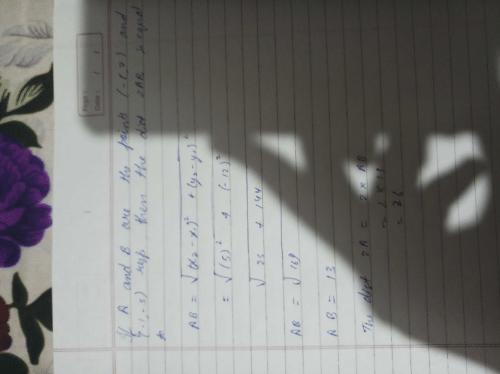 Page :
Date : / /
If A and B are the points (-6,7) and
(-1,-5) resp. then the dist 2AB is equal
to
AB = √(x₂-x₁)² + (y₂-y₁)²
= √(5)² + (-12)²
√25 + 144
AB = √169
AB = 13
The dist 2A = 2 × AB
= 2 × 13
= 26